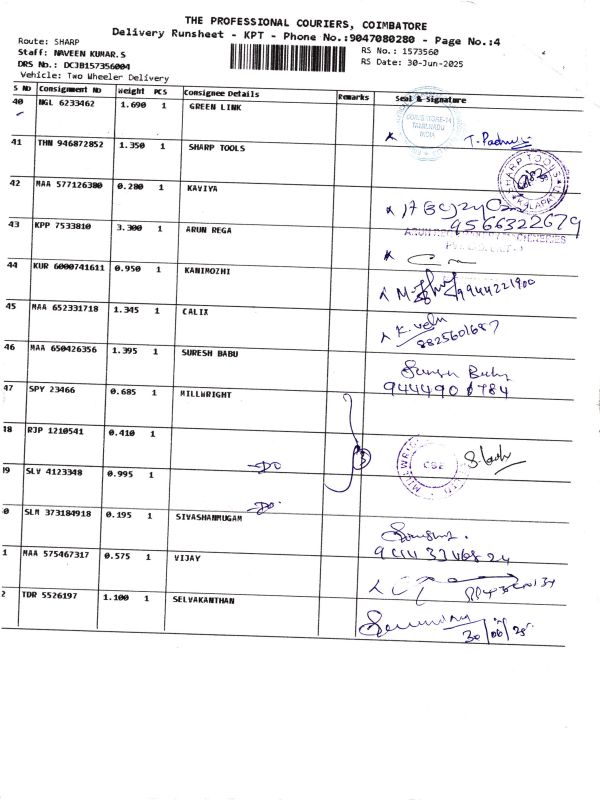 THE PROFESSIONAL COURIERS, COIMBATORE
Delivery Runsheet - KPT - Phone No.:9047080280 - Page No.:4
Route: SHARP
Staff: NAVEEN KUMAR.S
DRS No.: DCJB157356004
Vehicle: Two Wheeler Delivery
RS No.: 1573560
RS Date: 30-Jun-2025
S No Consignment No Weight PCS Consignee Details Remarks Seal & Signature
40 NGL 6233462 1.690 1 GREEN LINK
COIMBATORE-14
TAMILNADU
INDIA
41 THN 946872852 1.350 1 SHARP TOOLS
SHARP TOOLS
KALAPATTI
42 MAA 577126380 0.280 1 KAVIYA
9566322679
43 KPP 7533810 3.300 1 ARUN REGA
44 KUR 6000741611 0.950 1 KANIMOZHI
9944221900
45 MAA 652331718 1.345 1 CALIX
K. velu
8825601687
46 MAA 650426356 1.395 1 SURESH BABU
Suresh Babu
47 SPY 23466 0.685 1 MILLWRIGHT
18 RJP 1210541 0.410 1 -DO
3
CBE
19 SLV 4123348 0.995 1 -DO-
0 SLM 373184918 0.195 1 SIVASHANMUGAM
1 MAA 575467317 0.575 1 VIJAY
2 TDR 5526197 1.100 1 SELVAKANTHAN
30/06/25